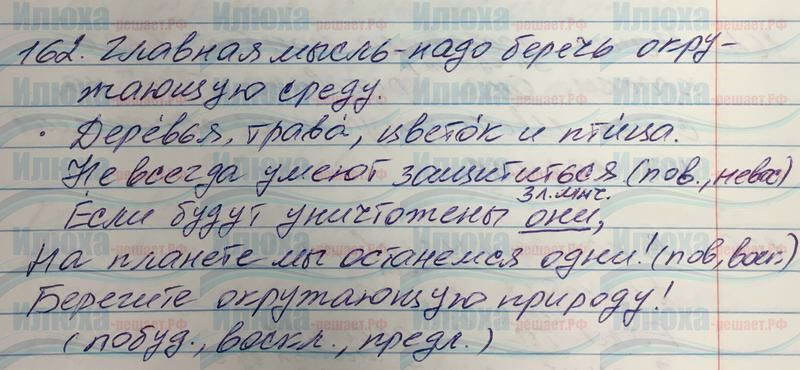 162. Главная мысль - надо беречь окру-
жающую среду.
· Дере́вья, трава́, цвето́к и пти́ца.
Не всегда умеют защититься (пов., невос)
3 л. мн. ч.
Если будут уничтожены они,
На планете мы останемся одни! (пов, воск.)
Берегите окружающую природу!
(побуд., воскл., предл.)